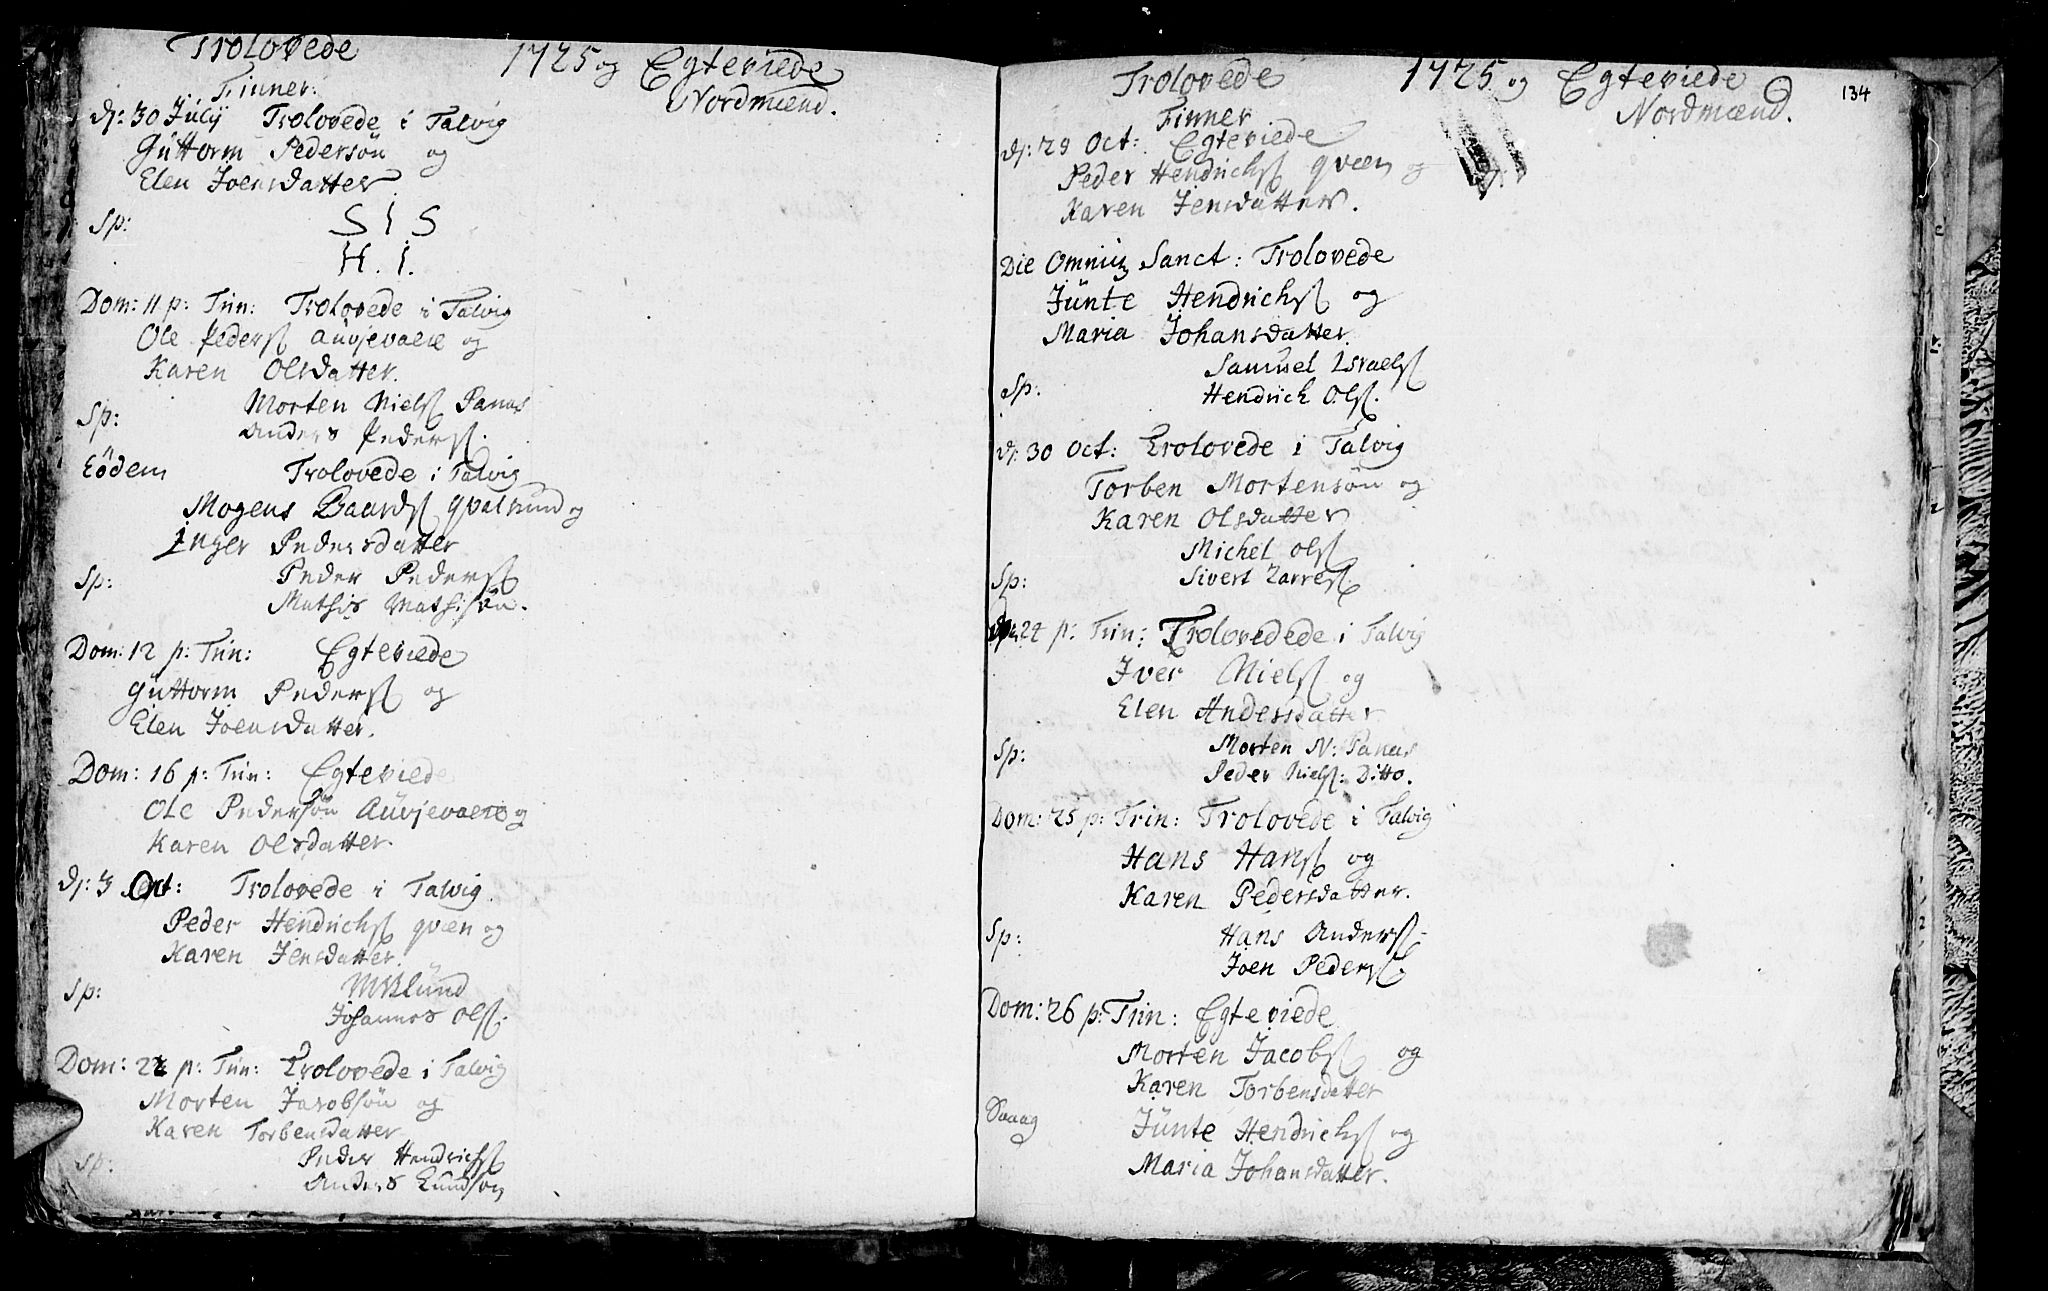 Trolovede 1725 og Egteviede
Finner: Nordmænd.
d: 30 Julij Trolovede i Talvig
Guttorm Pedersøn og
Elen Joensdatter
Sp: S I S
H. I.
Dom: 11 p: Trin: Trolovede i Talvig
Ole Peders Auvjevaere og
Karen Olsdatter.
Morten Niels Panas
Sp:
Anders Peders.
Eodem Trolovede i Talvig
Mogens Baards qvalsund og
Inger Pedersdatter
Sp: Peder Peders
Mathis Mathisøn.
Dom: 12 p: Trin: Egteviede
Guttorm Peders og
Elen Joensdatter.
Dom: 16 p: Trin: Egteviede
Ole Pedersøn Auvjevaere og
Karen Olsdatter.
d: 3 Oct: Trolovede i Talvig
Peder Hendrichs qvæn og
Karen Jensdatter.
Sp: Lund
Johannes Ols.
Dom: 22 p: Trin: Trolovede i Talvig
Morten Jacobsøn og
Karen Torbensdatter
Sp: Peder Hendrichs
Anders Lundson
Trolovede 1725 og Egteviede 134
Finner Nordmænd.
d: 28 Oct: Egteviede
Peder Hendrichs qvæn og
Karen Jensdatter.
Die Omnium Sanct: Trolovede
Jünte Hendrichs og
Maria Johansdatter.
Samuel Israels
Sp: Hendrich Ols.
d: 30 Oct: Trolovede i Talvig
Torben Mortensøn og
Karen Olsdatter
Michel Ols
Sp: Sivert Zarres.
24 p: Trin: Trolovedede i Talvig
Iver Niels og
Elen Andersdatter
Sp: Morten N: Panas
Peder Niels: Ditto.
Dom: 25 p: Trin: Trolovede i Talvig
Hans Hans og
Karen Pedersdatter.
Sp: Hans Anders.
Joen Peders.
Dom: 26 p: Trin: Egteviede
Morten Jacobs og
Karen Torbensdatter
Saaog
Jünte Hendrichs og
Maria Johansdatter.